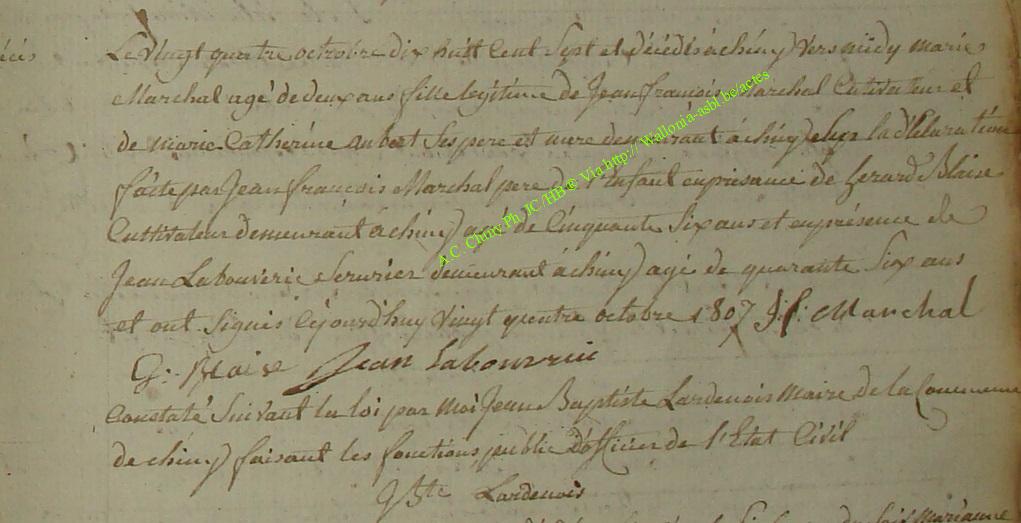 Le vingt quatre octobre dix huit cent sept et décédés à chiny vers midy marie
Marchal agé de deux ans fille legitime de Jean françois Marchal Cutivateur et
de marie Catherine aubert Ses pere et mere demeurant à chiny Sur la déclaration
faite par Jean françois Marchal pere de l'Enfant en présance de Gerard Blaise
Cultivateur demeurant à chiny agé de Cinquante Six ans et en présence de
Jean Labouverie Serurier demeurant à chiny agé de quarante Six ans
et ont Signés Cejourd'huy vingt quatre octobre 1807 J: f: Marchal
G: Blaise Jean Labouverie
Constaté Suivant la loi par moi Jean Baptiste Lardenois Maire de la Commune
de chiny faisant les fonctions public D'officier de l'Etat Civil
JBte Lardenois
A.C. Chiny Ph. JC /HB ® Via http:// Wallonia-asbl.be/actes